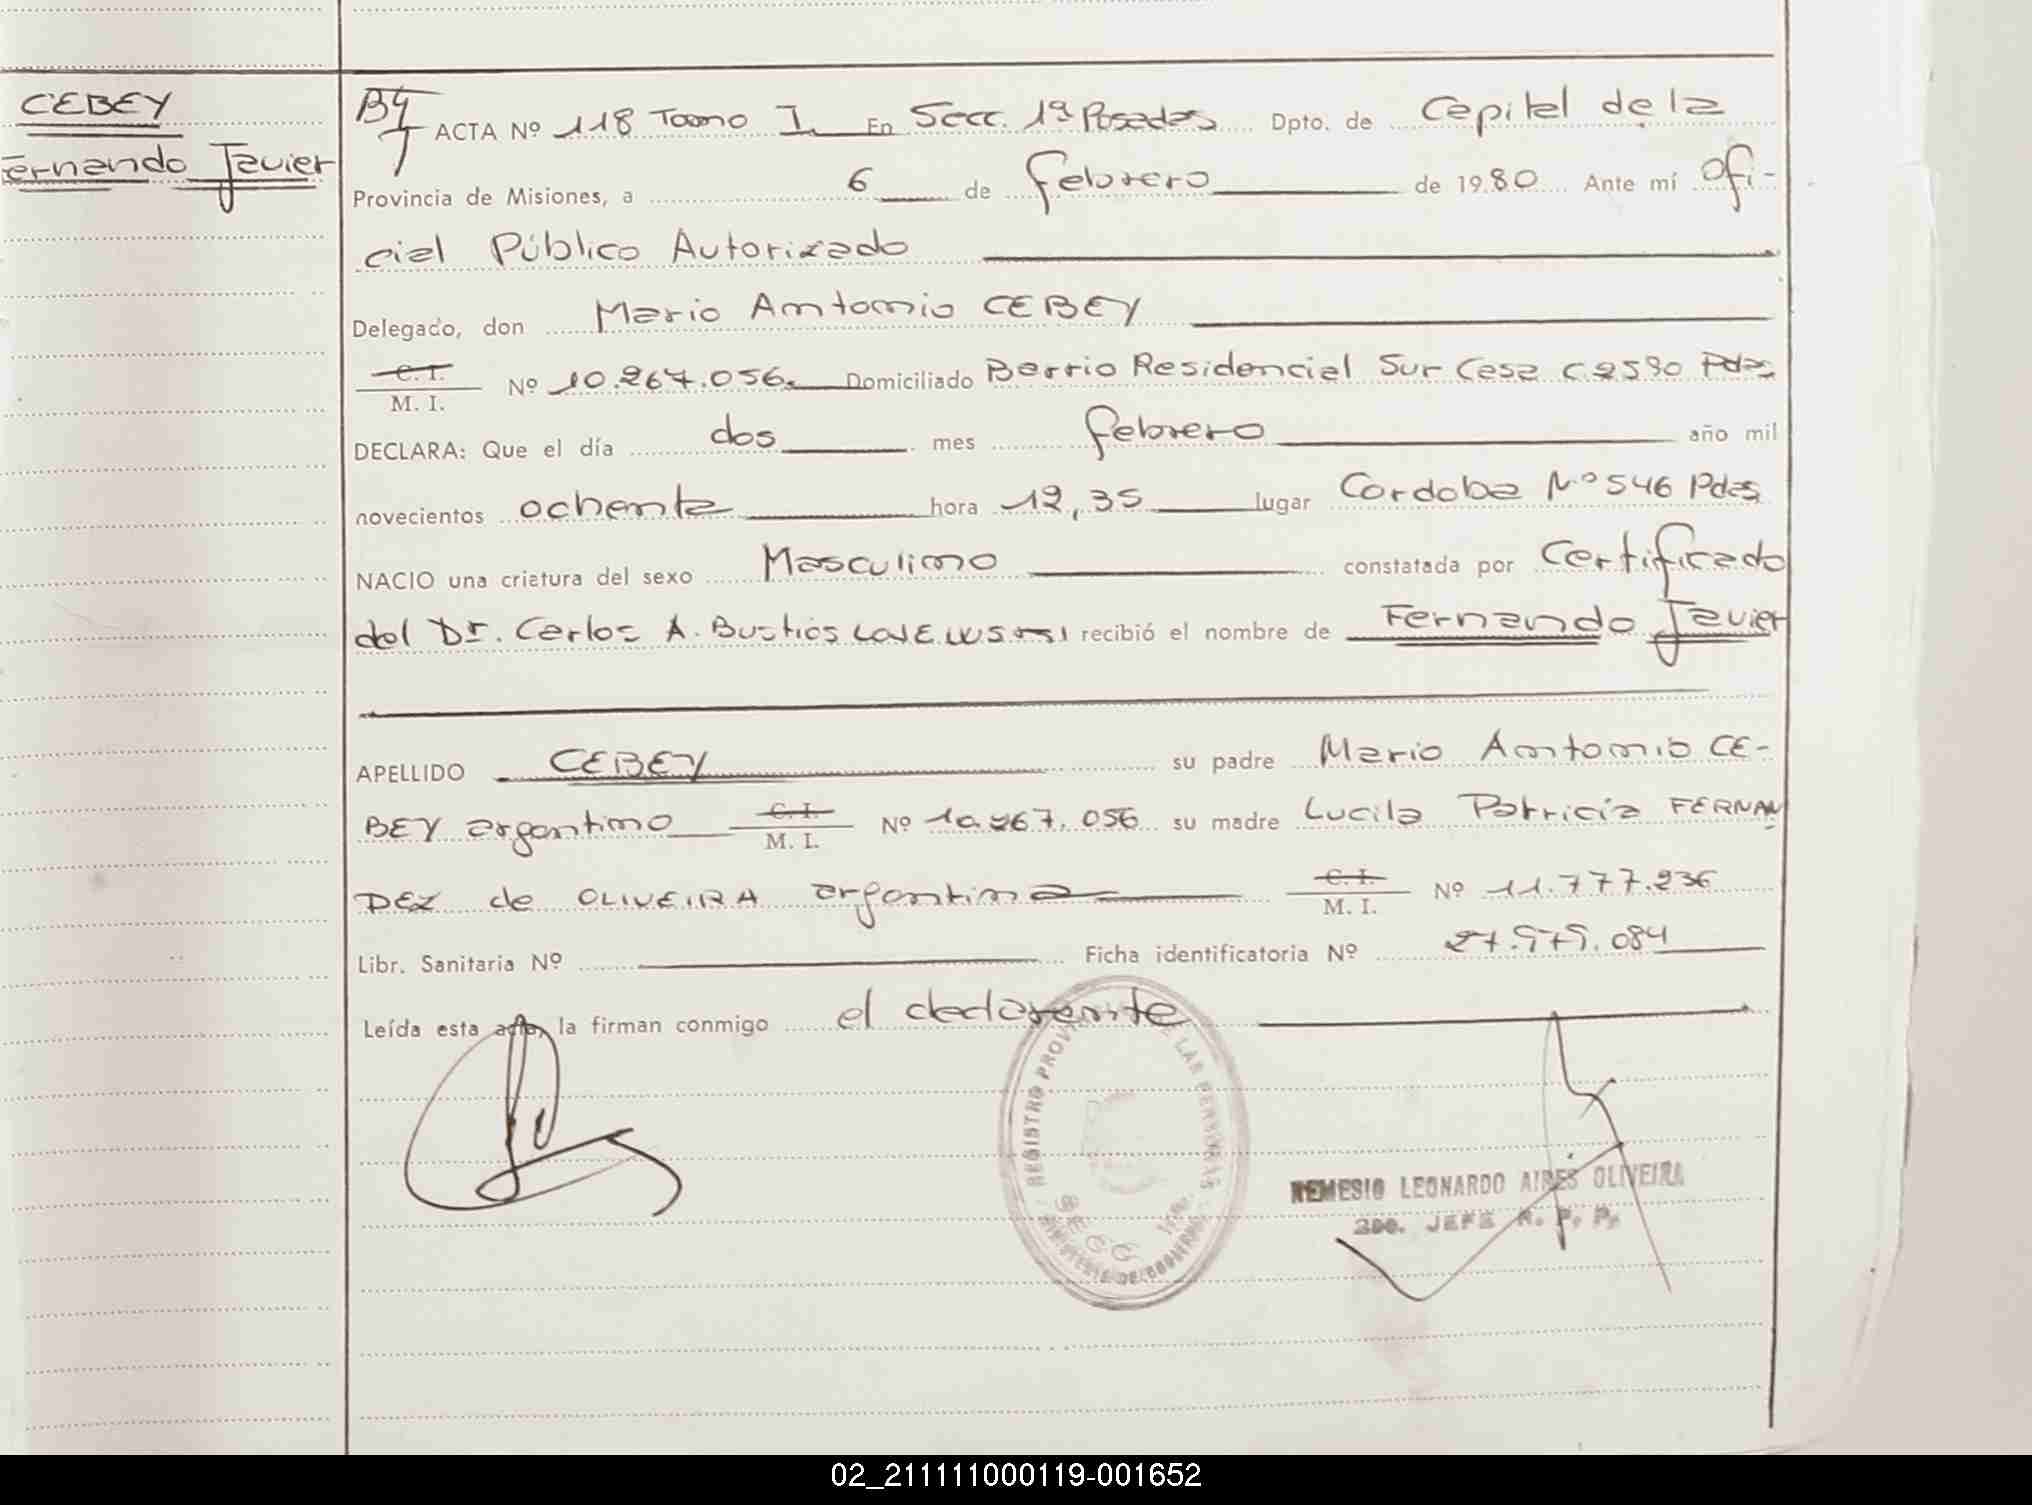 CEBEY
Fernando Javier
ACTA Nº 118 Tomo I En Secc. 1ª Posadas Dpto. de Capital de la
Provincia de Misiones, a 6 de febrero de 1980 Ante mí Ofi-
cial Público Autorizado
Delegado, don Mario Antonio CEBEY
C. I.
M. I. Nº 10.267.056 Domiciliado Barrio Residencial Sur Casa C 2590 Pdas
DECLARA: Que el día dos mes febrero año mil
novecientos ochenta hora 12,35 lugar Cordoba Nº 546 Pdas
NACIO una criatura del sexo Masculino constatada por Certificado
del Dr. Carlos A. Bustios recibió el nombre de Fernando Javier
APELLIDO CEBEY su padre Mario Antonio CE-
BEY argentino C. I. M. I. Nº 10.267.056 su madre Lucila Patricia FERNAN
DEZ de OLIVEIRA argentina C. I. M. I. Nº 11.777.236
Libr. Sanitaria Nº Ficha identificatoria Nº 27.979.084
Leída esta acta, la firman conmigo el declarante
REGISTRO PROVINCIAL DE LAS PERSONAS
SECC. 1ra.
MINISTERIO DE GOBIERNO
NEMESIO LEONARDO AIRES OLIVEIRA
2do. JEFE R. P. P.
02_211111000119-001652